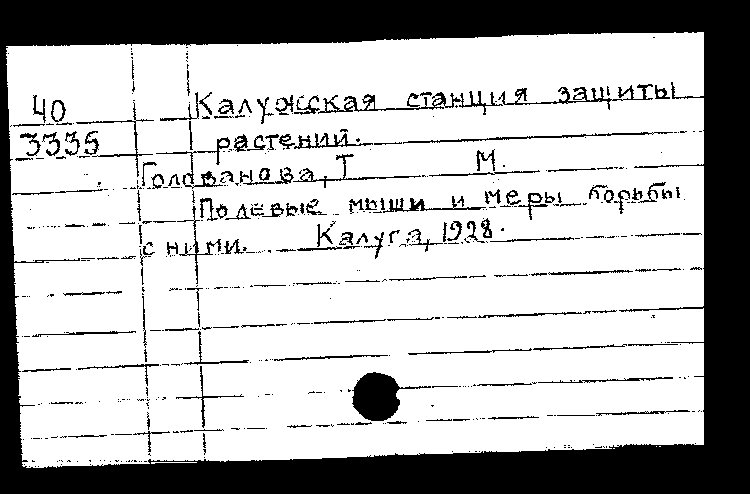 40 Калужская станция защиты
3335 растений.
Голованова, Т М.
Полевые мыши и меры борьбы
с ними. Калуга, 1928.